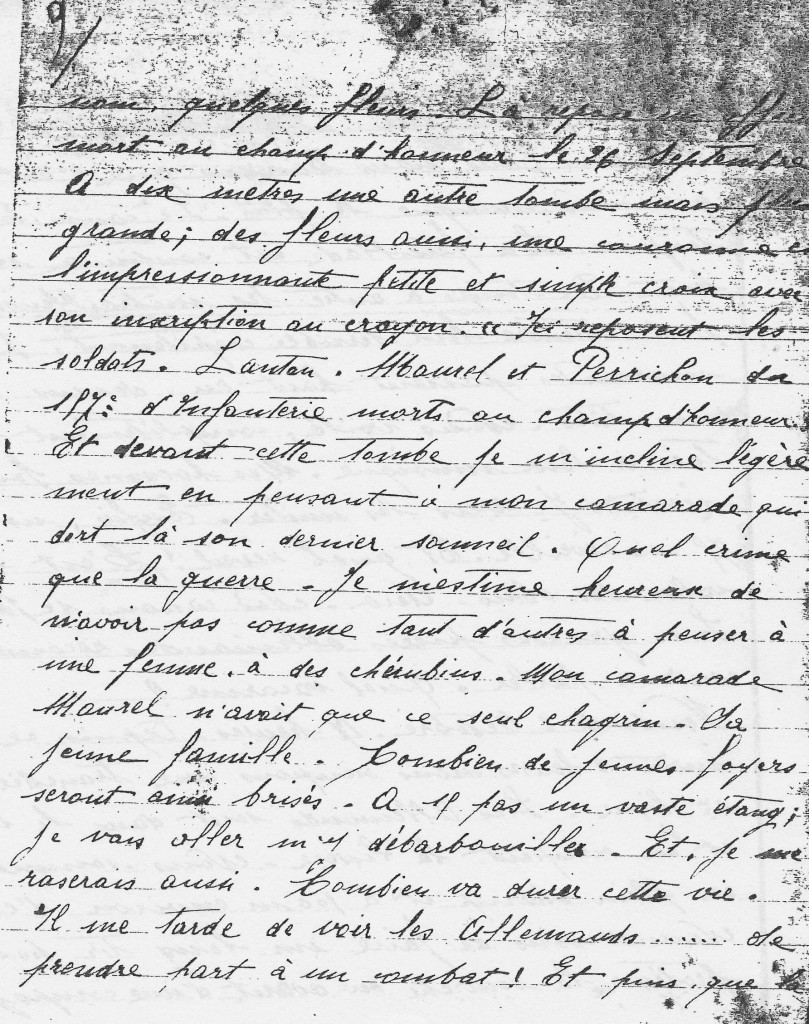 9/
nom, quelques fleurs. Là repose un
mort au champ d'honneur le 26 Septembre
A dix mètres une autre tombe mais plus
grande; des fleurs aussi, une couronne et
l'impressionnante petite et simple croix avec
son inscription au crayon. « Ici reposent les
soldats. Lanton. Maurel et Perrichon du
157e d'Infanterie morts au champ d'honneur.
Et devant cette tombe je m'incline légère
ment en pensant à mon camarade qui
dort là son dernier sommeil. Quel crime
que la guerre. Je m'estime heureux de
n'avoir pas comme tant d'autres à penser à
une femme, à des chérubins. Mon camarade
Maurel n'avait que ce seul chagrin. Sa
jeune famille. Combien de jeunes foyers
seront ainsi brisés. A 15 pas un vaste étang;
je vais aller m'y débarbouiller. Et, je me
raserais aussi. Combien va durer cette vie.
Il me tarde de voir les Allemands ...... de
prendre part à un combat! Et puis, que